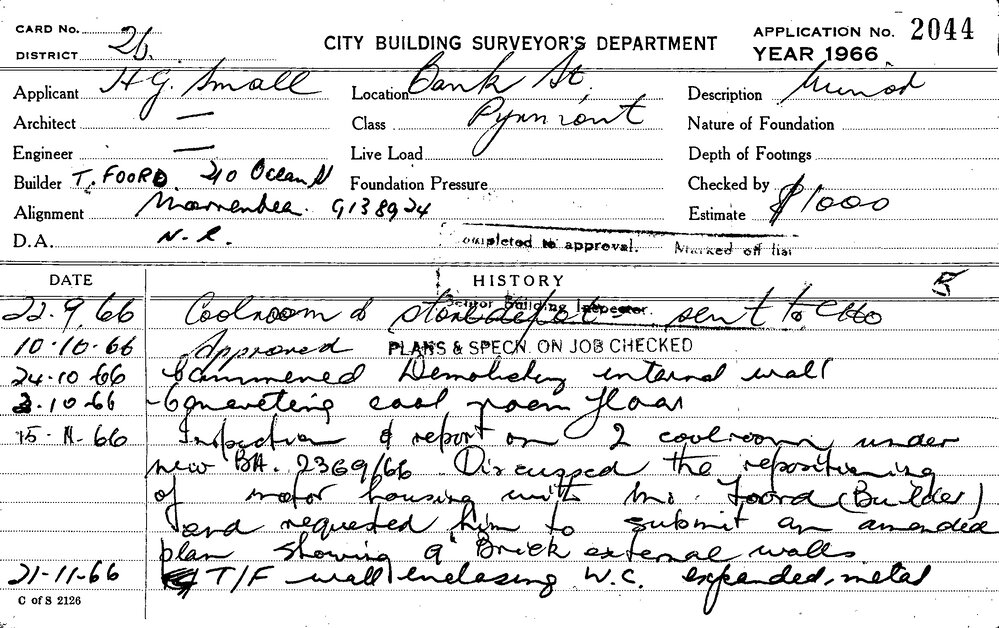 CARD No.
DISTRICT 26.
CITY BUILDING SURVEYOR'S DEPARTMENT
APPLICATION No. 2044
YEAR 1966
Applicant H G. Small
Location Bank St,
Description Minor
Architect —
Class Pyrmont
Nature of Foundation
Engineer —
Live Load
Depth of Footings
Builder T. FOORD. 210 Ocean St
Foundation Pressure
Checked by
Alignment 9138924
Estimate $1000
D.A. N.R.
completed to approval. Marked off list
DATE
HISTORY
5
Senior Building Inspector.
22.9.66 Coolroom & store depot sent to
10-10-66 Approved PLANS & SPECN. ON JOB CHECKED
24-10-66 Commenced Demolishing internal wall
3.10-66 - Concreting cool room floor
15-11-66 Inspection & report on 2 coolrooms under
new BA. 2369/66. Discussed the repositioning
of motor housing with Mr. Foord (Builder)
and requested him to submit an amended
plan showing 9" Brick external walls
21-11-66 T/F wall enclosing W.C. expanded metal
C of S 2126